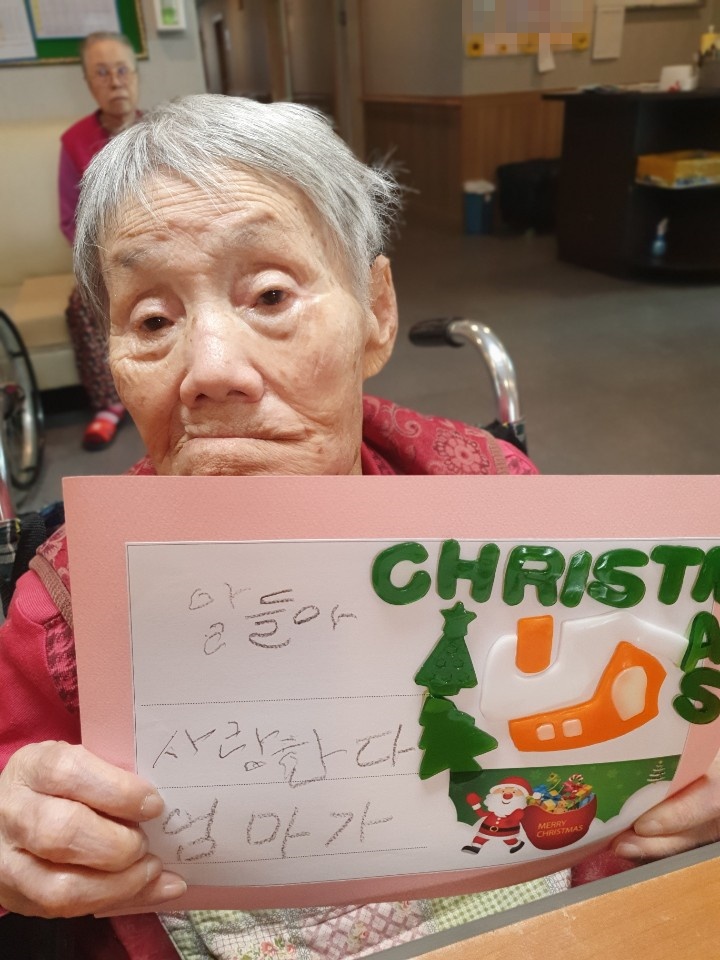 아들아
사랑한다
엄마가
CHRISTM
AS
MERRY
CHRISTMAS